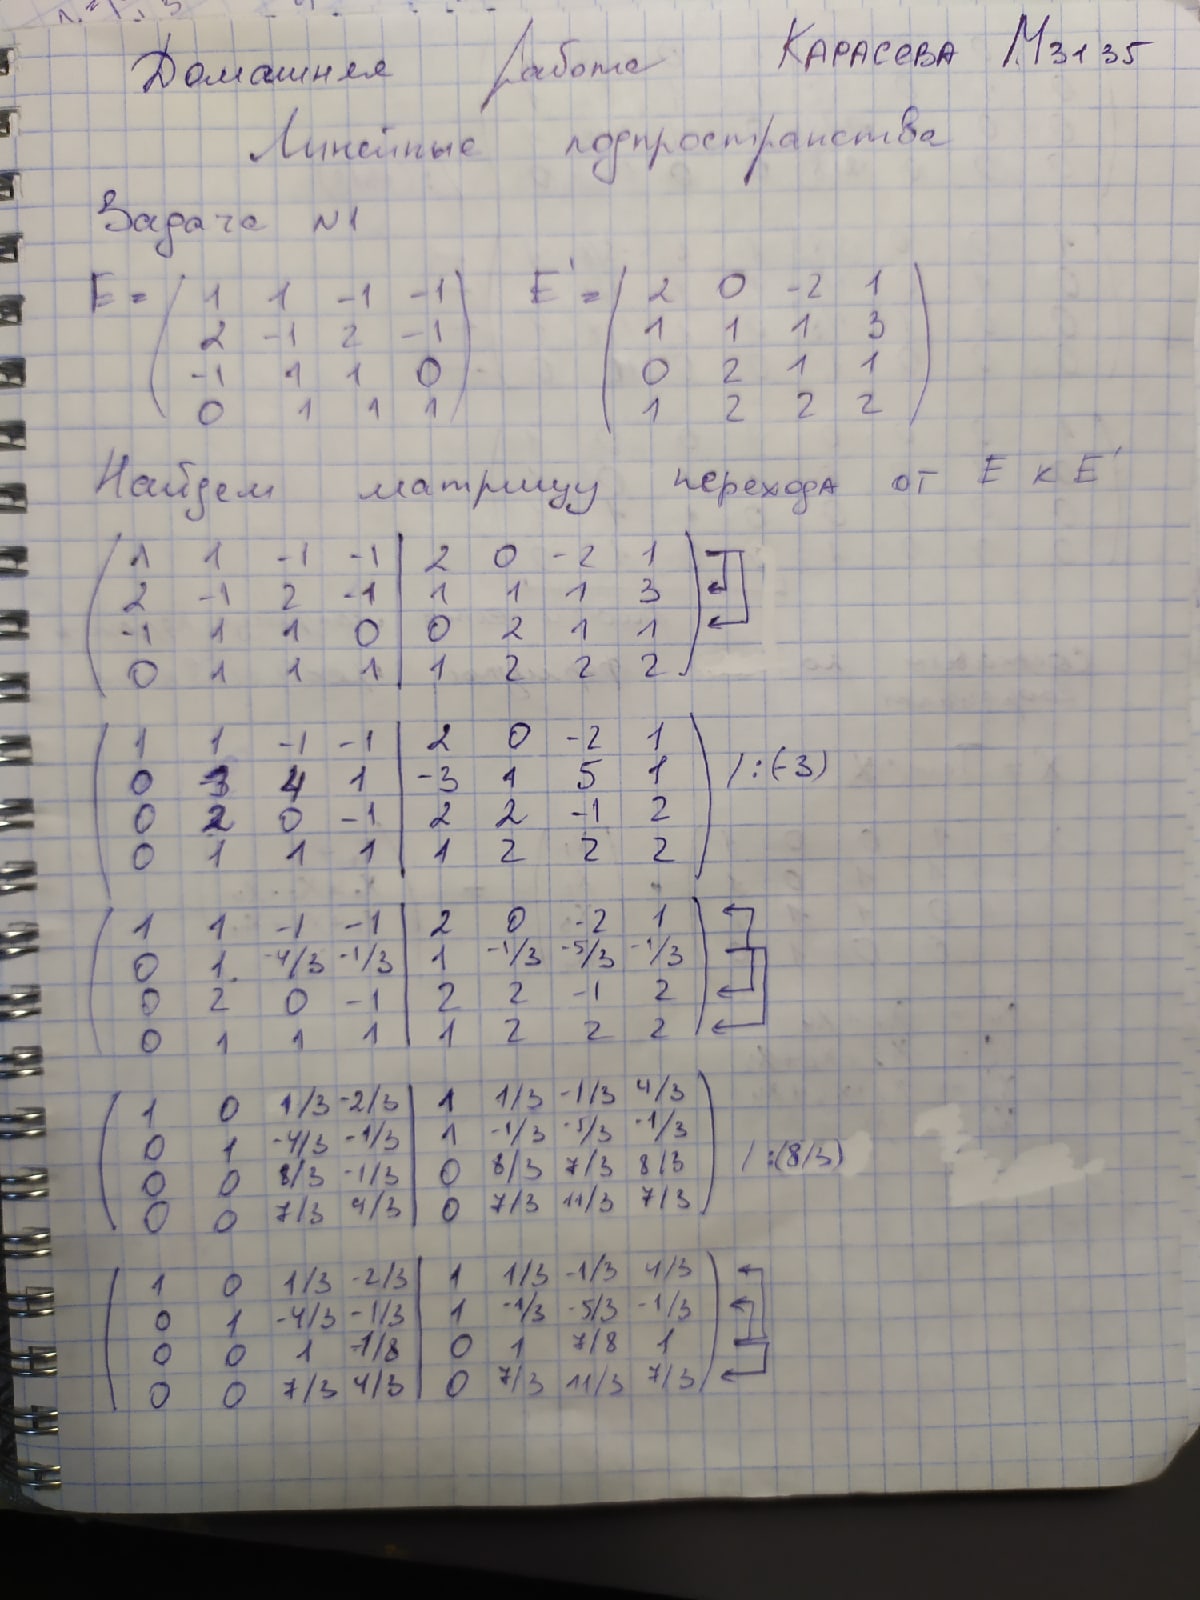 Домашняя работа КАРАСЕВА М3135
Линейные подпространства
Задача N1
E = ( 1 1 -1 -1 ) E' = ( 2 0 -2 1 )
2 -1 2 -1 1 1 1 3
-1 1 1 0 0 2 1 1
0 1 1 1 1 2 2 2
Найдем матрицу перехода от E к E'
1 1 -1 -1 | 2 0 -2 1
2 -1 2 -1 | 1 1 1 3
-1 1 1 0 | 0 2 1 1
0 1 1 1 | 1 2 2 2
1 1 -1 -1 | 2 0 -2 1
0 -3 4 1 | -3 1 5 1 /:(-3)
0 2 0 -1 | 2 2 -1 2
0 1 1 1 | 1 2 2 2
1 1 -1 -1 | 2 0 -2 1
0 1 -4/3 -1/3 | 1 -1/3 -5/3 -1/3
0 2 0 -1 | 2 2 -1 2
0 1 1 1 | 1 2 2 2
1 0 1/3 -2/3 | 1 1/3 -1/3 4/3
0 1 -4/3 -1/3 | 1 -1/3 -5/3 -1/3
0 0 8/3 -1/3 | 0 8/3 7/3 8/3 /:(8/3)
0 0 7/3 4/3 | 0 7/3 11/3 7/3
1 0 1/3 -2/3 | 1 1/3 -1/3 4/3
0 1 -4/3 -1/3 | 1 -1/3 -5/3 -1/3
0 0 1 -1/8 | 0 1 7/8 1
0 0 7/3 4/3 | 0 7/3 11/3 7/3